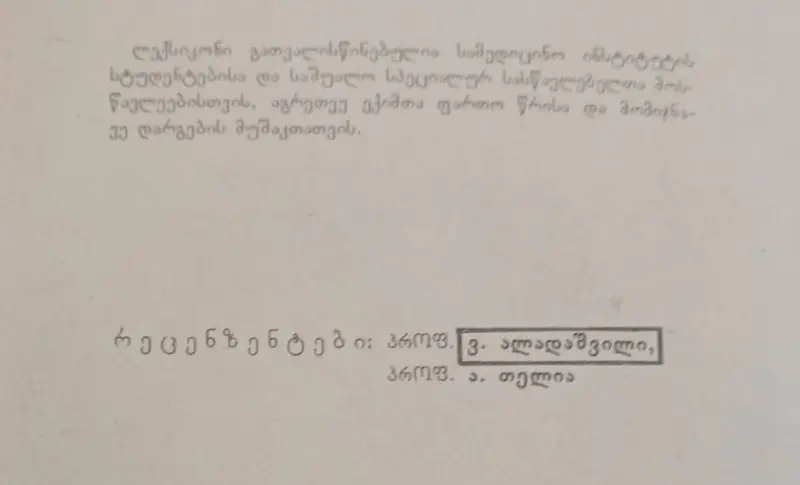 ლექსიკონი გათვალისწინებულია სამედიცინო ინსტიტუტის
სტუდენტებისა და საშუალო სპეციალურ სასწავლებელთა მოს-
წავლეებისთვის, აგრეთვე ექიმთა ფართო წრისა და მომიჯნა-
ვე დარგების მუშაკთათვის.
რ ე ც ე ნ ზ ე ნ ტ ე ბ ი: პროფ. ვ. ალადაშვილი,
პროფ. ა. თელია